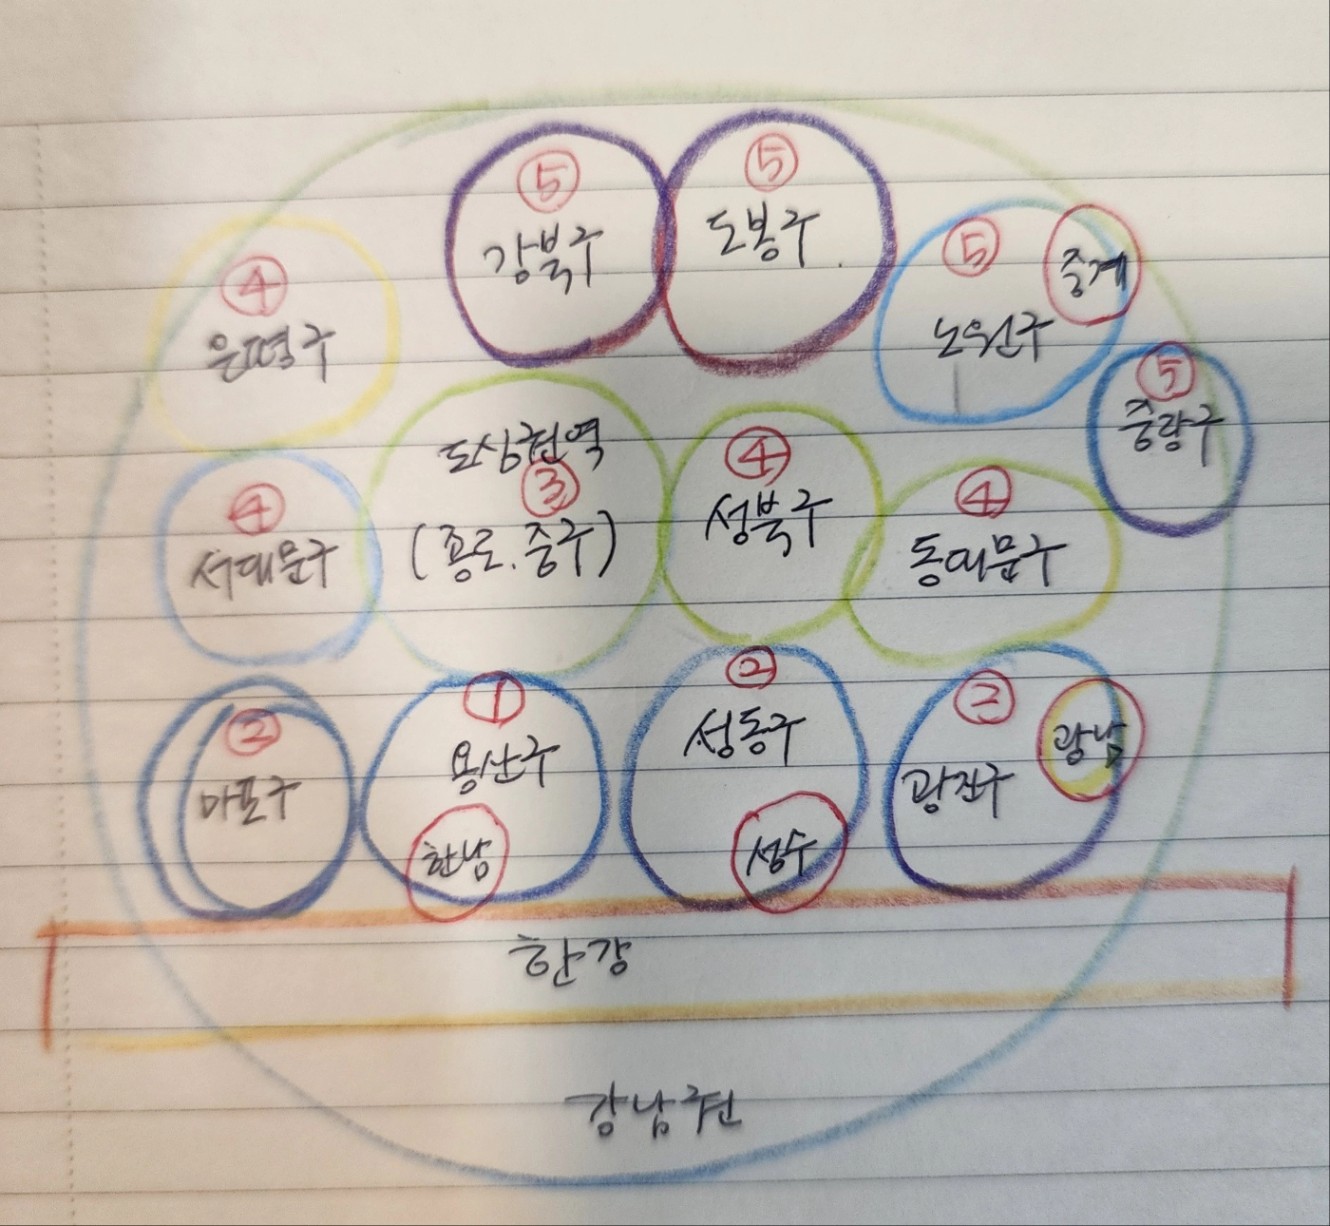 ⑤
강북구
⑤
도봉구
⑤
노원구
중계
④
은평구
⑤
중랑구
도심권역
③
(종로.중구)
④
성북구
④
동대문구
④
서대문구
②
마포구
①
용산구
한남
②
성동구
성수
②
광진구
광남
한강
강남권